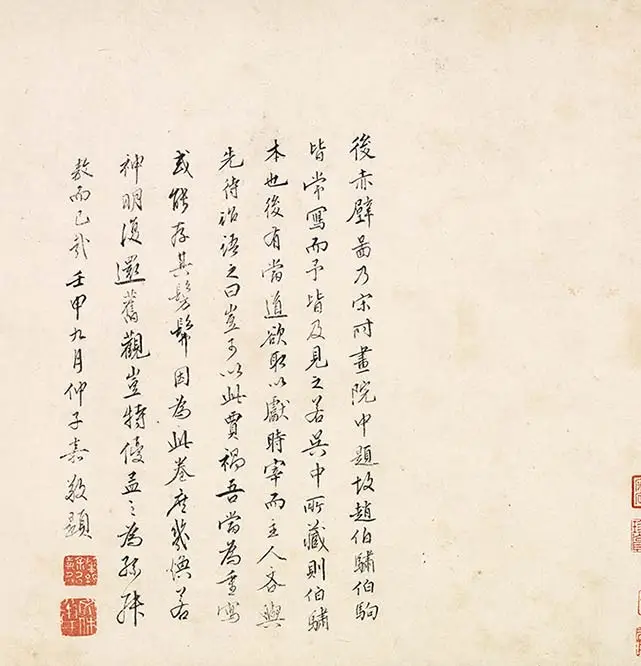 後赤壁啚乃宋时畫院中題故趙伯驌伯駒
皆常寫而予皆及見之若吳中所藏則伯驌
本也後有當道欲取以獻時宰而主人吝與
先待詔語之曰豈可以此賈禍吾當為重寫
或能存其髣髴因為此卷庶幾煥若
神明復還舊觀豈特優孟之為孫叔
敖而已哉壬申九月仲子嘉敬題